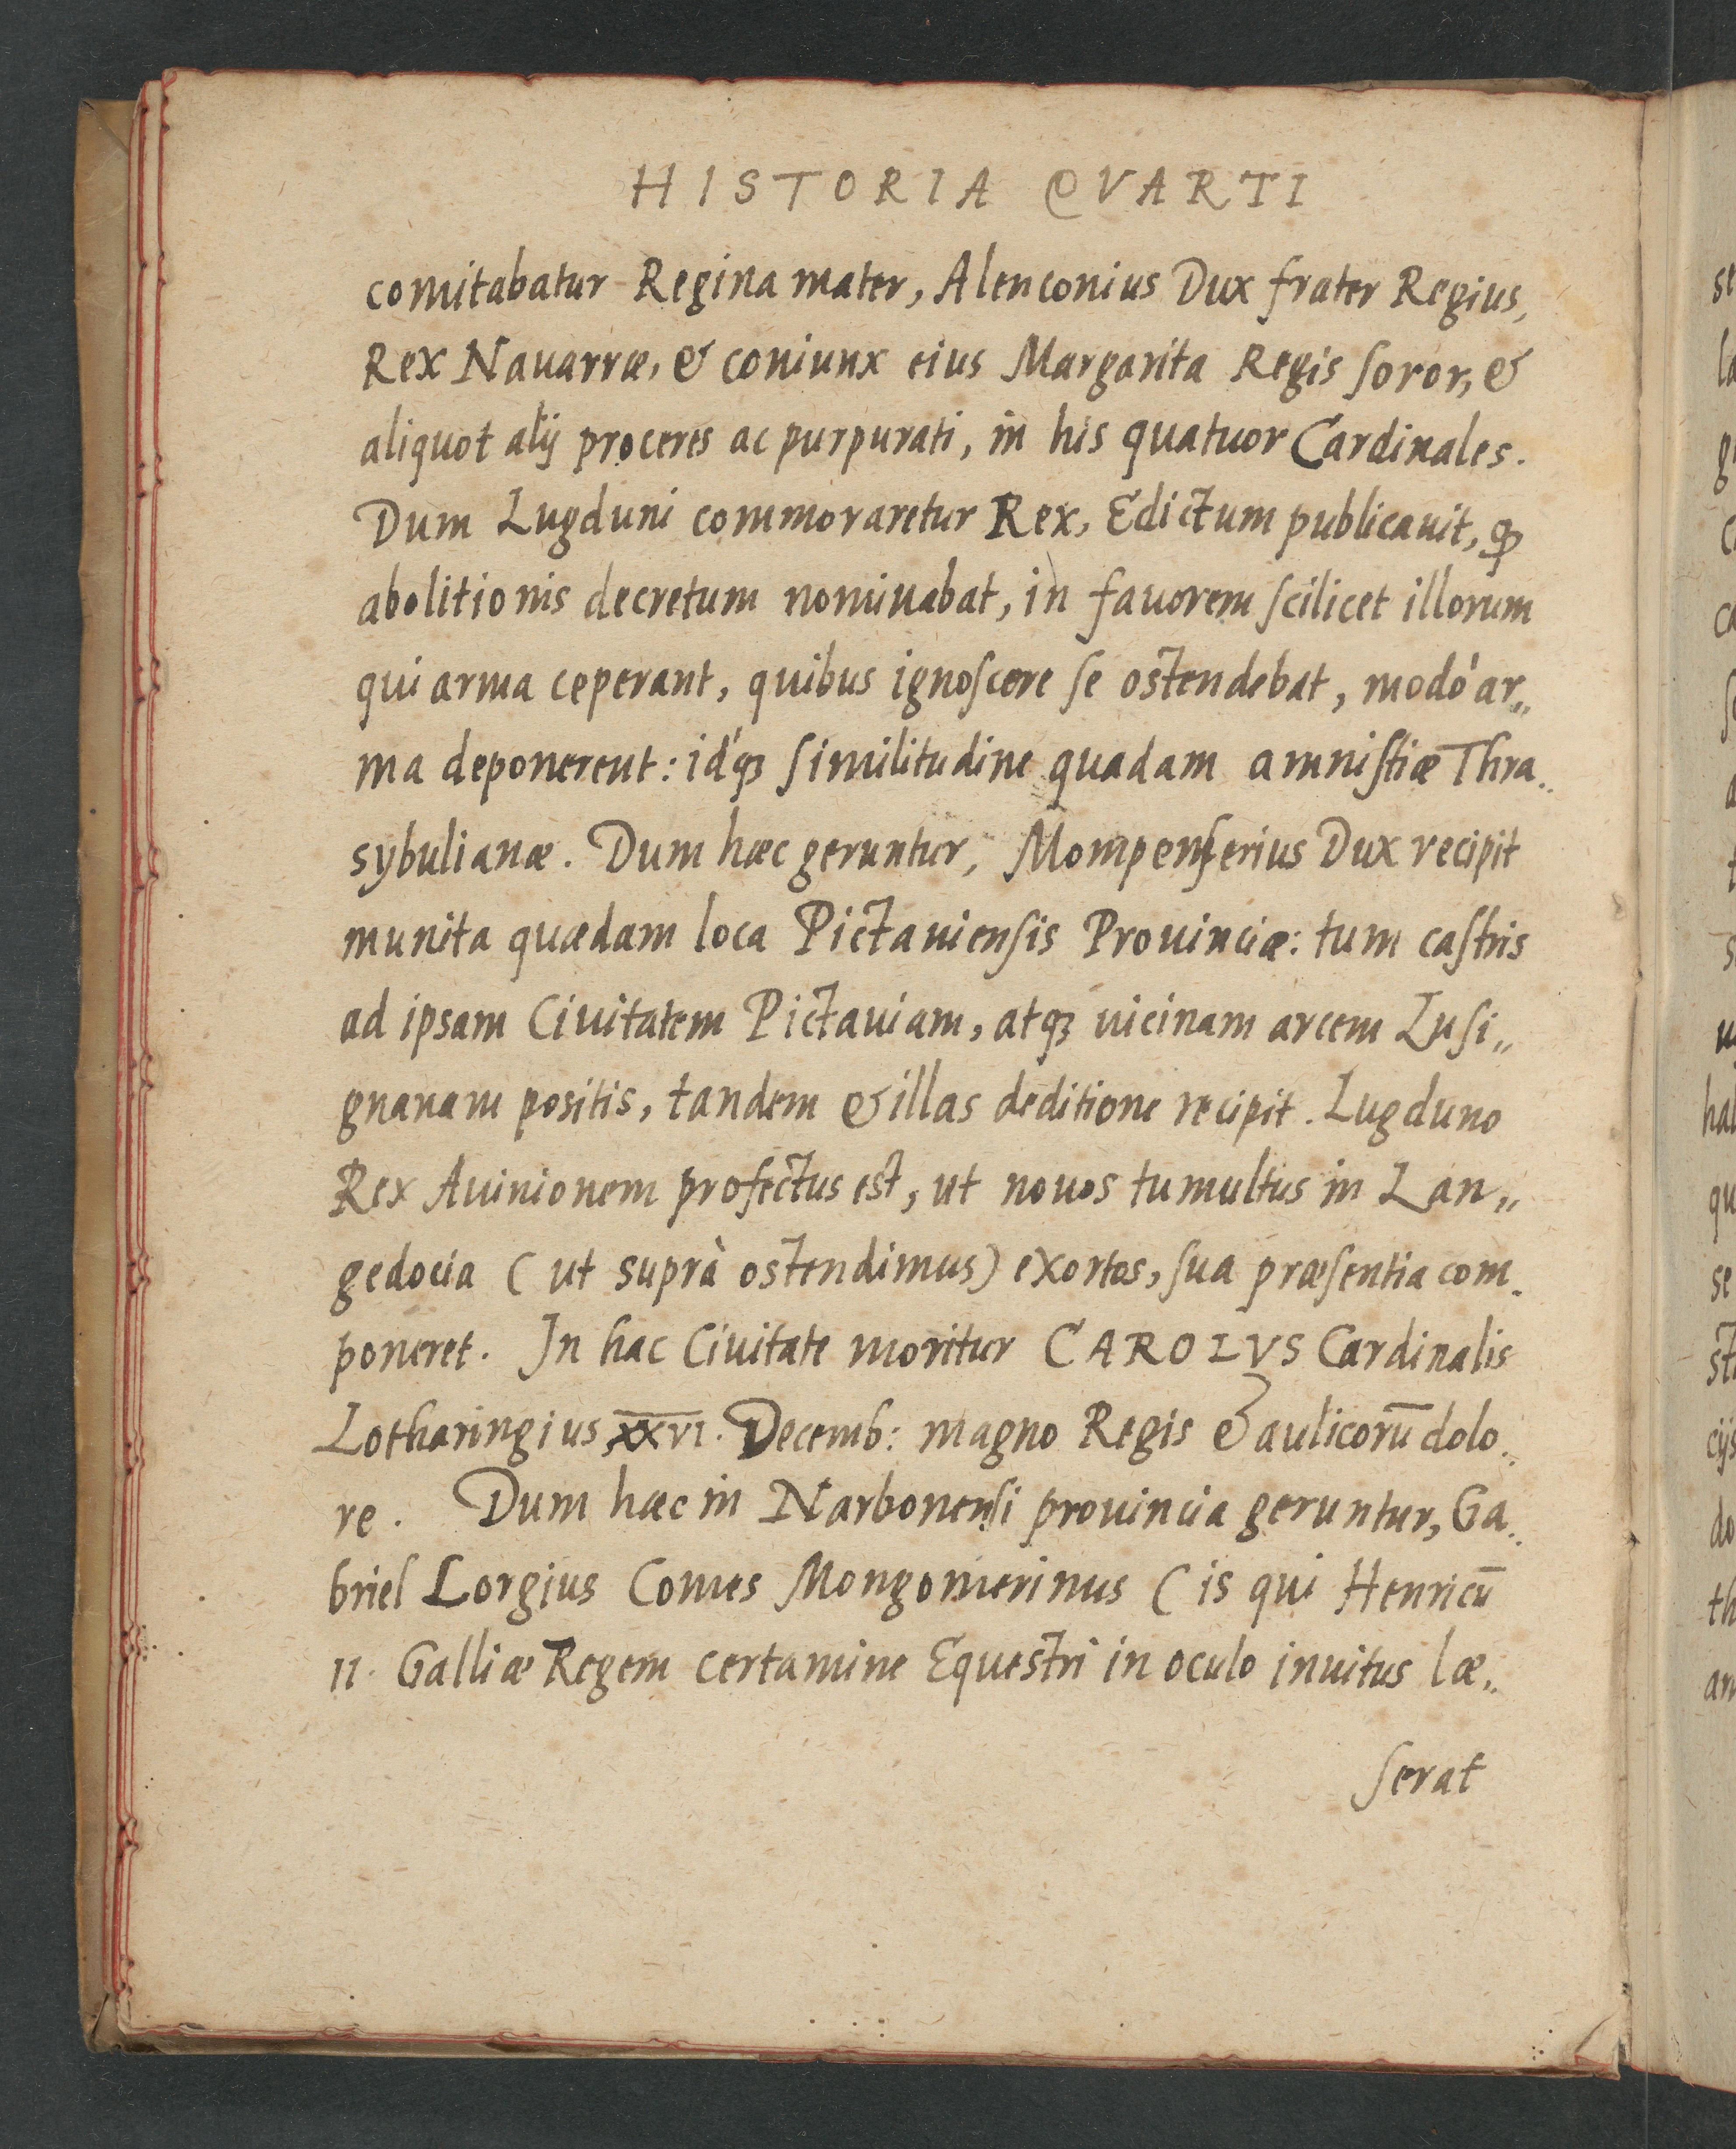 HISTORIA QVARTI
comitabatur Regina mater, Alenconius Dux frater Regius,
Rex Nauarræ, & coniunx eius Margarita Regis ſoror, &
aliquot alij proceres ac purpurati, in his quatuor Cardinales.
Dum Lugduni commoraretur Rex, Edictum publicauit, ꝙ
abolitionis decretum nominabat, in fauorem ſcilicet illorum
qui arma ceperant, quibus ignoſcere ſe ostendebat, modó ar„
ma deponerent: id́qꝫ ſimilitudine quadam amniſtiæ Thra„
sybulianæ. Dum hæc geruntur, Mompenſerius Dux recipit
munita quædam loca Pictauienſis Prouinciæ: tum caſtris
ad ipsam Ciuitatem Pictauiam, atqꝫ uicinam arcem Luſi„
gnanam positis, tandem & illas deditione recipit. Lugduno
Rex Auinionem profectus est, ut nouos tumultus in Lan„
gedocia (ut suprà ostendimus) exortos, ſua præſentia com„
poneret. In hac Ciuitate moritur CAROLVS Cardinalis
Lotharingius XXVI. Decemb: magno Regis & aulicorū dolo„
re. Dum hæc in Narbonenſi prouincia geruntur, Ga„
briel Lorgius Comes Mongomerinus (is qui Henricū
II. Galliæ Regem certamine Equestri in oculo inuitus læ„
ſerat